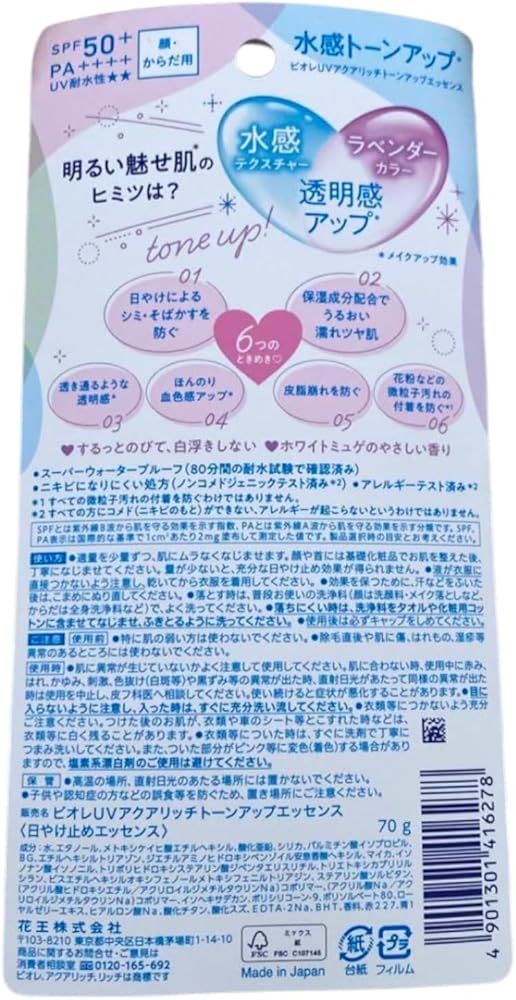 SPF50+
PA++++
UV耐水性★★
顔・
からだ用
水感トーンアップ*
ビオレUVアクアリッチトーンアップエッセンス
明るい魅せ肌*の
ヒミツは?
水感
テクスチャー
ラベンダー
カラー
透明感
アップ*
*メイクアップ効果
tone up!
01
日やけによる
シミ・そばかすを
防ぐ
02
保湿成分配合で
うるおい
濡れツヤ肌
6つの
ときめき♡
透き通るような
透明感*
03
ほんのり
血色感アップ*
04
皮脂崩れを防ぐ
05
花粉などの
微粒子汚れの
付着を防ぐ*1
06
♥するっとのびて、白浮きしない ♥ホワイトミュゲのやさしい香り
•スーパーウォータープルーフ(80分間の耐水試験で確認済み)
•ニキビになりにくい処方(ノンコメドジェニックテスト済み*2) •アレルギーテスト済み*2
*1 すべての微粒子汚れの付着を防ぐわけではありません。
*2 すべての方にコメド(ニキビのもと)ができない、アレルギーが起こらないというわけではありません。
SPFとは紫外線B波から肌を守る効果を示す指数、PAとは紫外線A波から肌を守る効果を示す分類です。SPF、
PA表示は国際的な基準で1cm²あたり2mg塗布して測定した値です。製品選択時の目安とお考えください。
使い方 ●適量を少量ずつ、肌にムラなくなじませます。顔や首には基礎化粧品でお肌を整えた後、
丁寧になじませてください。量が少ないと、充分な日やけ止め効果が得られません。●液が衣服に
直接つかないよう注意し、乾いてから衣服を着用してください。●効果を保つために、汗などをふいた
後は、こまめにぬり直してください。●落とす時は、普段お使いの洗浄料(顔は洗顔料・メイク落としなど、
からだは全身洗浄料など)で、よく洗ってください。●落ちにくい時は、洗浄料をタオルや化粧用コッ
トンに含ませてなじませ、ふきとるように洗ってください。●使用後は必ずキャップをしめてください。
ご注意 使用前 ●特に肌の弱い方は使わないでください。●除毛直後や肌に傷、はれもの、湿疹等
異常のあるところには使わないでください。
使用時 ●肌に異常が生じていないかよく注意して使用してください。肌に合わない時、使用中に赤み、
はれ、かゆみ、刺激、色抜け(白斑等)や黒ずみ等の異常が出た時、直射日光があたって同様の異常が出た
時は使用を中止し、皮フ科医へ相談してください。使い続けると症状が悪化することがあります。●目に
入らないように注意し、入った時は、すぐに充分洗い流してください。●衣類等につかないよう充分
ご注意ください。つけた後のお肌が、衣類や車のシート等とこすれた時などは、
衣類等に白く残ることがあります。●衣類等についた時は、すぐに洗剤で丁寧に
つまみ洗いしてください。また、ついた部分がピンク等に変色(着色)する場合があり
ますので、塩素系漂白剤のご使用は避けてください。
保管 ●高温の場所、直射日光のあたる場所には置かないでください。
●子供や認知症の方などの誤食等を防ぐため、置き場所にご注意ください。
販売名 ビオレUVアクアリッチトーンアップエッセンス
〈日やけ止めエッセンス〉 70g
成分:水、エタノール、メトキシケイヒ酸エチルヘキシル、酸化亜鉛、シリカ、パルミチン酸イソプロピル、
BG、エチルヘキシルトリアゾン、ジエチルアミノヒドロキシベンゾイル安息香酸ヘキシル、マイカ、イソノ
ナン酸イソノニル、トリポリヒドロキシステアリン酸ジペンタエリスリチル、トリエトキシカプリリル
シラン、ビスエチルヘキシルオキシフェノールメトキシフェニルトリアジン、ステアリン酸ソルビタン、
(アクリル酸ヒドロキシエチル/アクリロイルジメチルタウリンNa)コポリマー、(アクリル酸Na/アク
リロイルジメチルタウリンNa)コポリマー、イソヘキサデカン、ポリシリコーン-9、ポリソルベート80、ロー
ヤルゼリーエキス、ヒアルロン酸Na、酸化チタン、酸化スズ、EDTA-2Na、BHT、香料、赤227、青1
花王株式会社
〒103-8210 東京都中央区日本橋茅場町1-14-10
商品に関するお問合せ・ご意見は
消費者相談室 0120-165-692
ビオレ、アクアリッチ、リッチは商標です
FSC
ミックス
紙
FSC C107145
Made in Japan
紙
台紙
プラ
フィルム
4 901301 416278